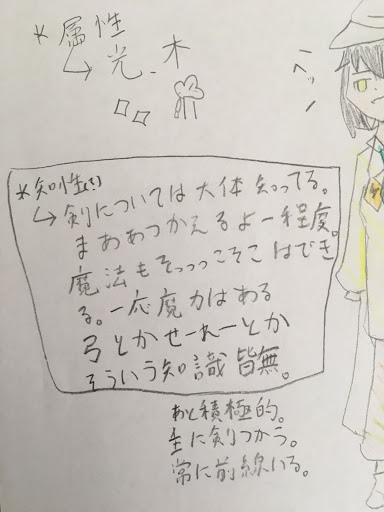 *属性
↳光、木
ヘッ!
*知性(?)
↳剣については大体知ってる。
まああつかえるよー程度。
魔法もそっっっこそこはでき
る。一応魔力はある
弓とかせーれーとか
そういう知識皆無。
あと積極的。
主に剣つかう。
常に前線いる。